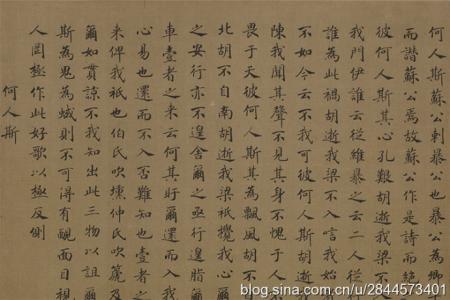 何人斯蘇公刺暴公也暴公為卿
而譖蘇公焉故蘇公作是詩而絕
彼何人斯其心孔艱胡逝我梁不
我門伊誰云從維暴之云二人從
誰為此禍胡逝我梁不入唁我始
不如今云不我可彼何人斯胡逝
陳我聞其聲不見其身不愧于人
畏于天彼何人斯其為飄風胡不
北胡不自南胡逝我梁祇攪我心爾
之安行亦不遑舍爾之亟行遑脂爾
車壹者之來云何其盱爾還而入我
心易也還而不入否難知也壹者之
来俾我祇也伯氏吹壎仲氏吹篪及
爾如貫諒不我知出此三物以詛爾
斯為鬼為蜮則不可得有靦面目視
人罔極作此好歌以極反側
何人斯
blog.sina.com.cn/u/2844573401